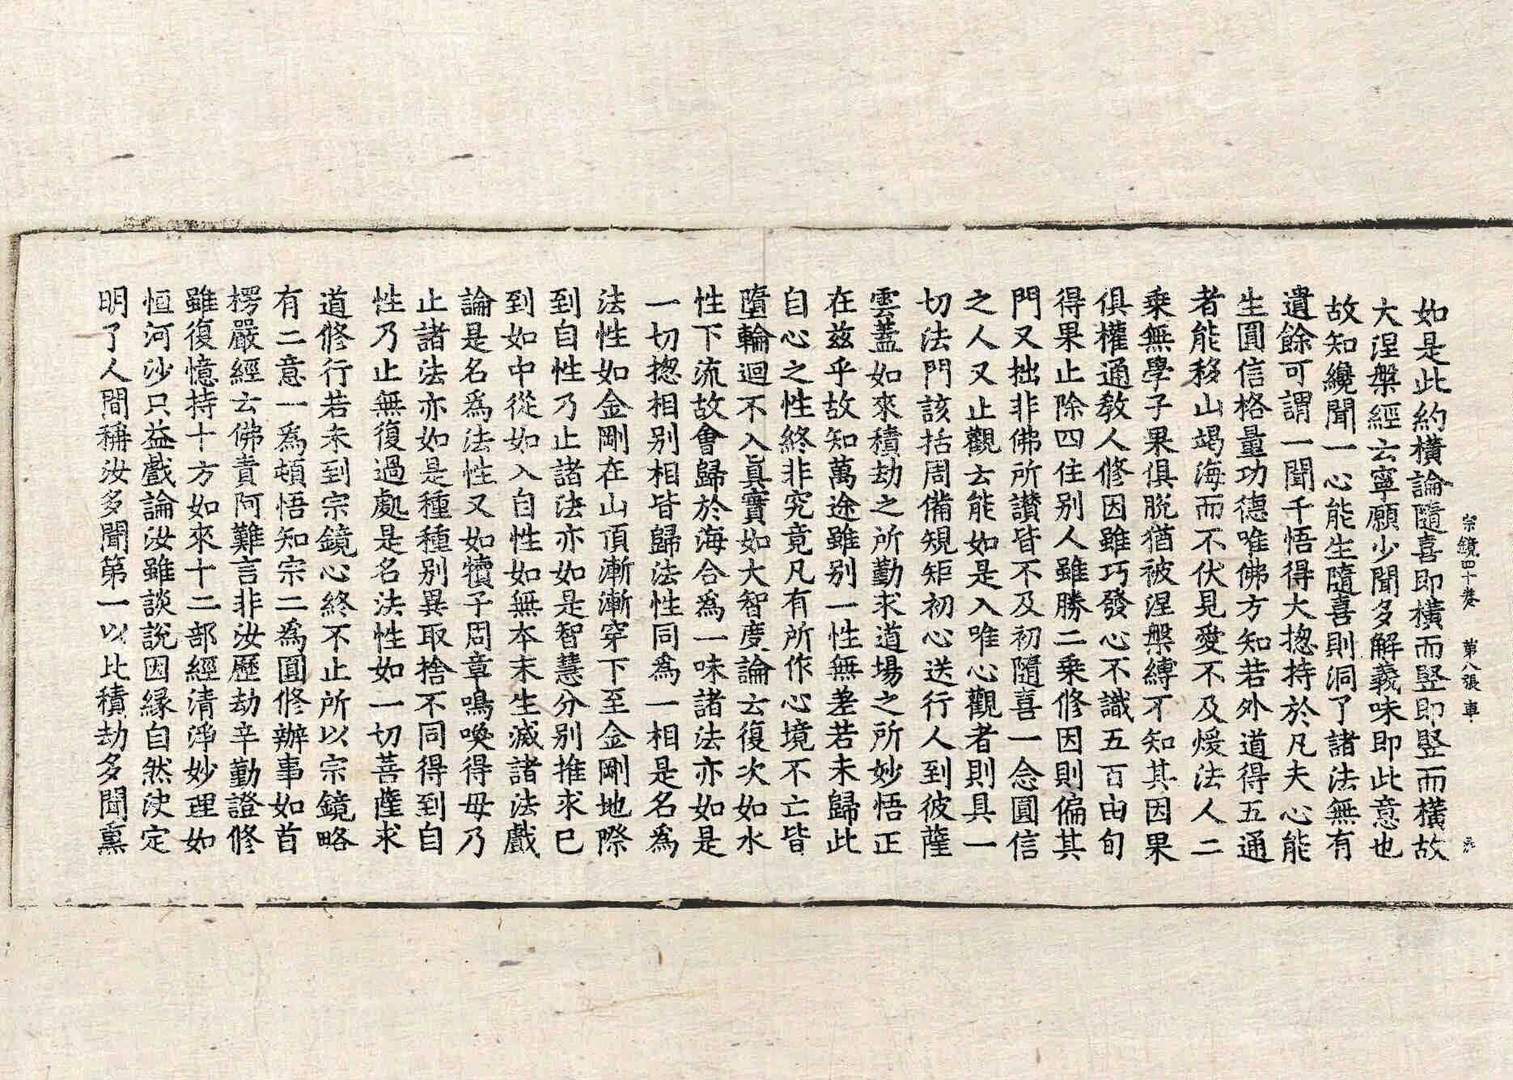 宗鏡四十卷　第八張　車
如是此約橫論隨喜即橫而竪即竪而橫故
大涅槃經云寧願少聞多解義味即此意也
故知纔聞一心能生隨喜則洞了諸法無有
遺餘可謂一聞千悟得大揔持於凡夫心能
生圓信格量功德唯佛方知若外道得五通
者能移山竭海而不伏見愛不及煖法人二
乘無學子果俱脫猶被涅槃縛不知其因果
俱權通教人修因雖巧發心不識五百由旬
得果止除四住別人雖勝二乘修因則偏其
門又拙非佛所讃皆不及初隨喜一念圓信
之人又止觀云能如是入唯心觀者則具一
切法門該括周備規矩初心送行人到彼薩
雲蓋如來積劫之所勤求道場之所妙悟正
在茲乎故知萬途雖别一性無差若未歸此
自心之性終非究竟凡有所作心境不亡皆
墮輪迴不入眞實如大智度論云復次如水
性下流故會歸於海合為一味諸法亦如是
一切揔相别相皆歸法性同為一相是名為
法性如金剛在山頂漸漸穿下至金剛地際
到自性乃止諸法亦如是智慧分別推求已
到如中從如入自性如無本末生滅諸法戲
論是名爲法性又如犢子周章鳴喚得母乃
止諸法亦如是種種別異取捨不同得到自
性乃止無復過處是名法性如一切菩薩求
道修行若未到宗鏡心終不止所以宗鏡略
有二意一爲頓悟知宗二為圓修辦事如首
楞嚴經云佛責阿難言非汝歷劫辛勤證修
雖復憶持十方如來十二部經清淨妙理如
恒河沙只益戲論汝雖談說因緣自然決定
明了人間稱汝多聞第一以此積劫多聞熏